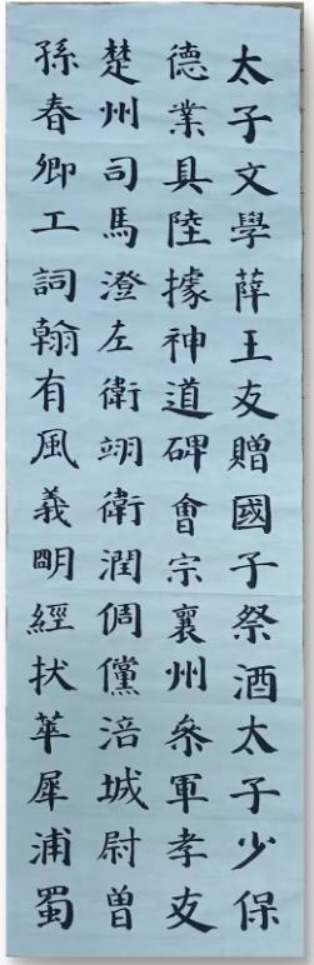 太子文學薛王友贈國子祭酒太子少保
德業具陸據神道碑會宗襄州參軍孝友
楚州司馬澄左衛翊衛潤倜儻涪城尉曾
孫春卿工詞翰有風義明經拔萃犀浦蜀